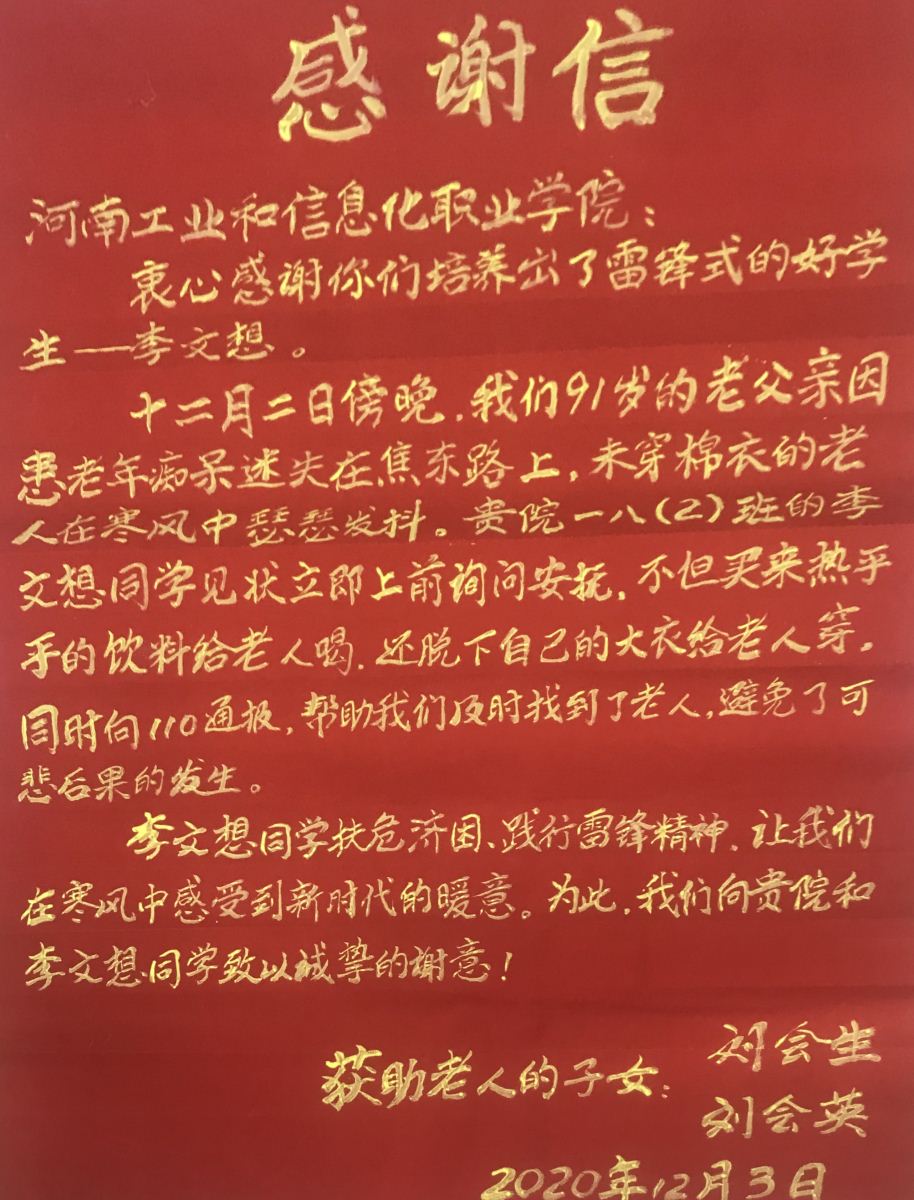 感谢信
河南工业和信息化职业学院：
衷心感谢你们培养出了雷锋式的好学
生——李文想。
十二月二日傍晚，我们91岁的老父亲因
患老年痴呆迷失在焦东路上，未穿棉衣的老
人在寒风中瑟瑟发抖。贵院一八（2）班的李
文想同学见状立即上前询问安抚，不但买来热乎
乎的饮料给老人喝，还脱下自己的大衣给老人穿，
同时向110通报，帮助我们及时找到了老人，避免了可
悲后果的发生。
李文想同学扶危济困、践行雷锋精神，让我们
在寒风中感受到新时代的暖意。为此，我们向贵院和
李文想同学致以诚挚的谢意！
获助老人的子女：刘会生
刘会英
2020年12月3日